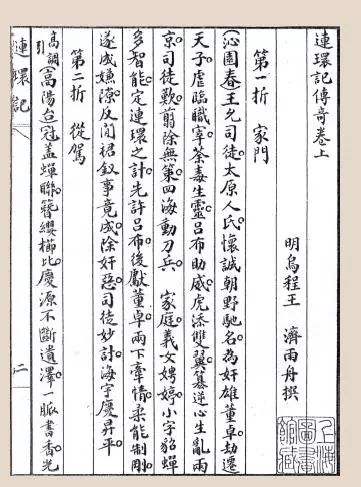 連環記傳奇卷上
明烏程王 濟雨舟撰
第一折 家門
(沁園春)王允司徒。太原人氏。懷誠朝野馳名。為奸雄董卓。劫遷
天子。虐臨職宰。荼毒生靈。呂布助威。虎添雙翼。篡逆心生亂兩
京。司徒歎。翦除無策。四海動刀兵。 家庭義女娉婷。小字貂蟬
多智能。定連環之計。先許呂布。後獻董卓。兩下牽情。柔能制剛。
遂成嫌隙。反間裙釵事竟成。除奸惡。司徒妙計。海宇慶昇平。
第二折 從駕
高調引(高陽台)冠蓋蟬聯。簪纓櫛比。慶源不斷遺澤。一脈書香。光
連環記
二
上海圖書館藏